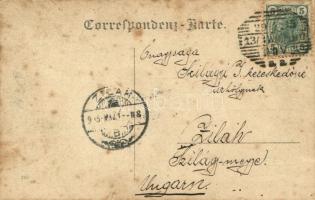 Correspondenz-Karte.
5
Őnagysága
Szilágyi J. kereskedőné
úrhölgynek
ZILAH
Zilah
Szilágy-megye.
Ungarn.